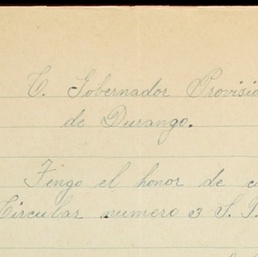 C. Gobernador Provisio
de Durango.
Tengo el honor de c
Circular numero 3 S. P.